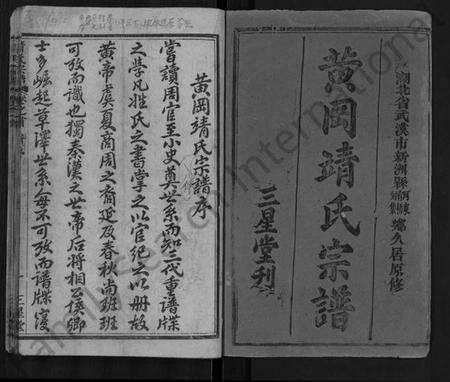 湖北省武漢市新洲縣
鄉久居原修
黄岡靖氏宗譜
三星堂刋
黄岡靖氏宗譜序
嘗讀周官至小史奠世系而知三代重譜牒
之學凡姓氏之書掌之以官纪之以册故
黄帝虞夏商周之裔延及春秋尚班班
可攷而識也獨秦漢之世帝后将相公侯卿
士多崛起草澤世系每不可攷而譜牒寖